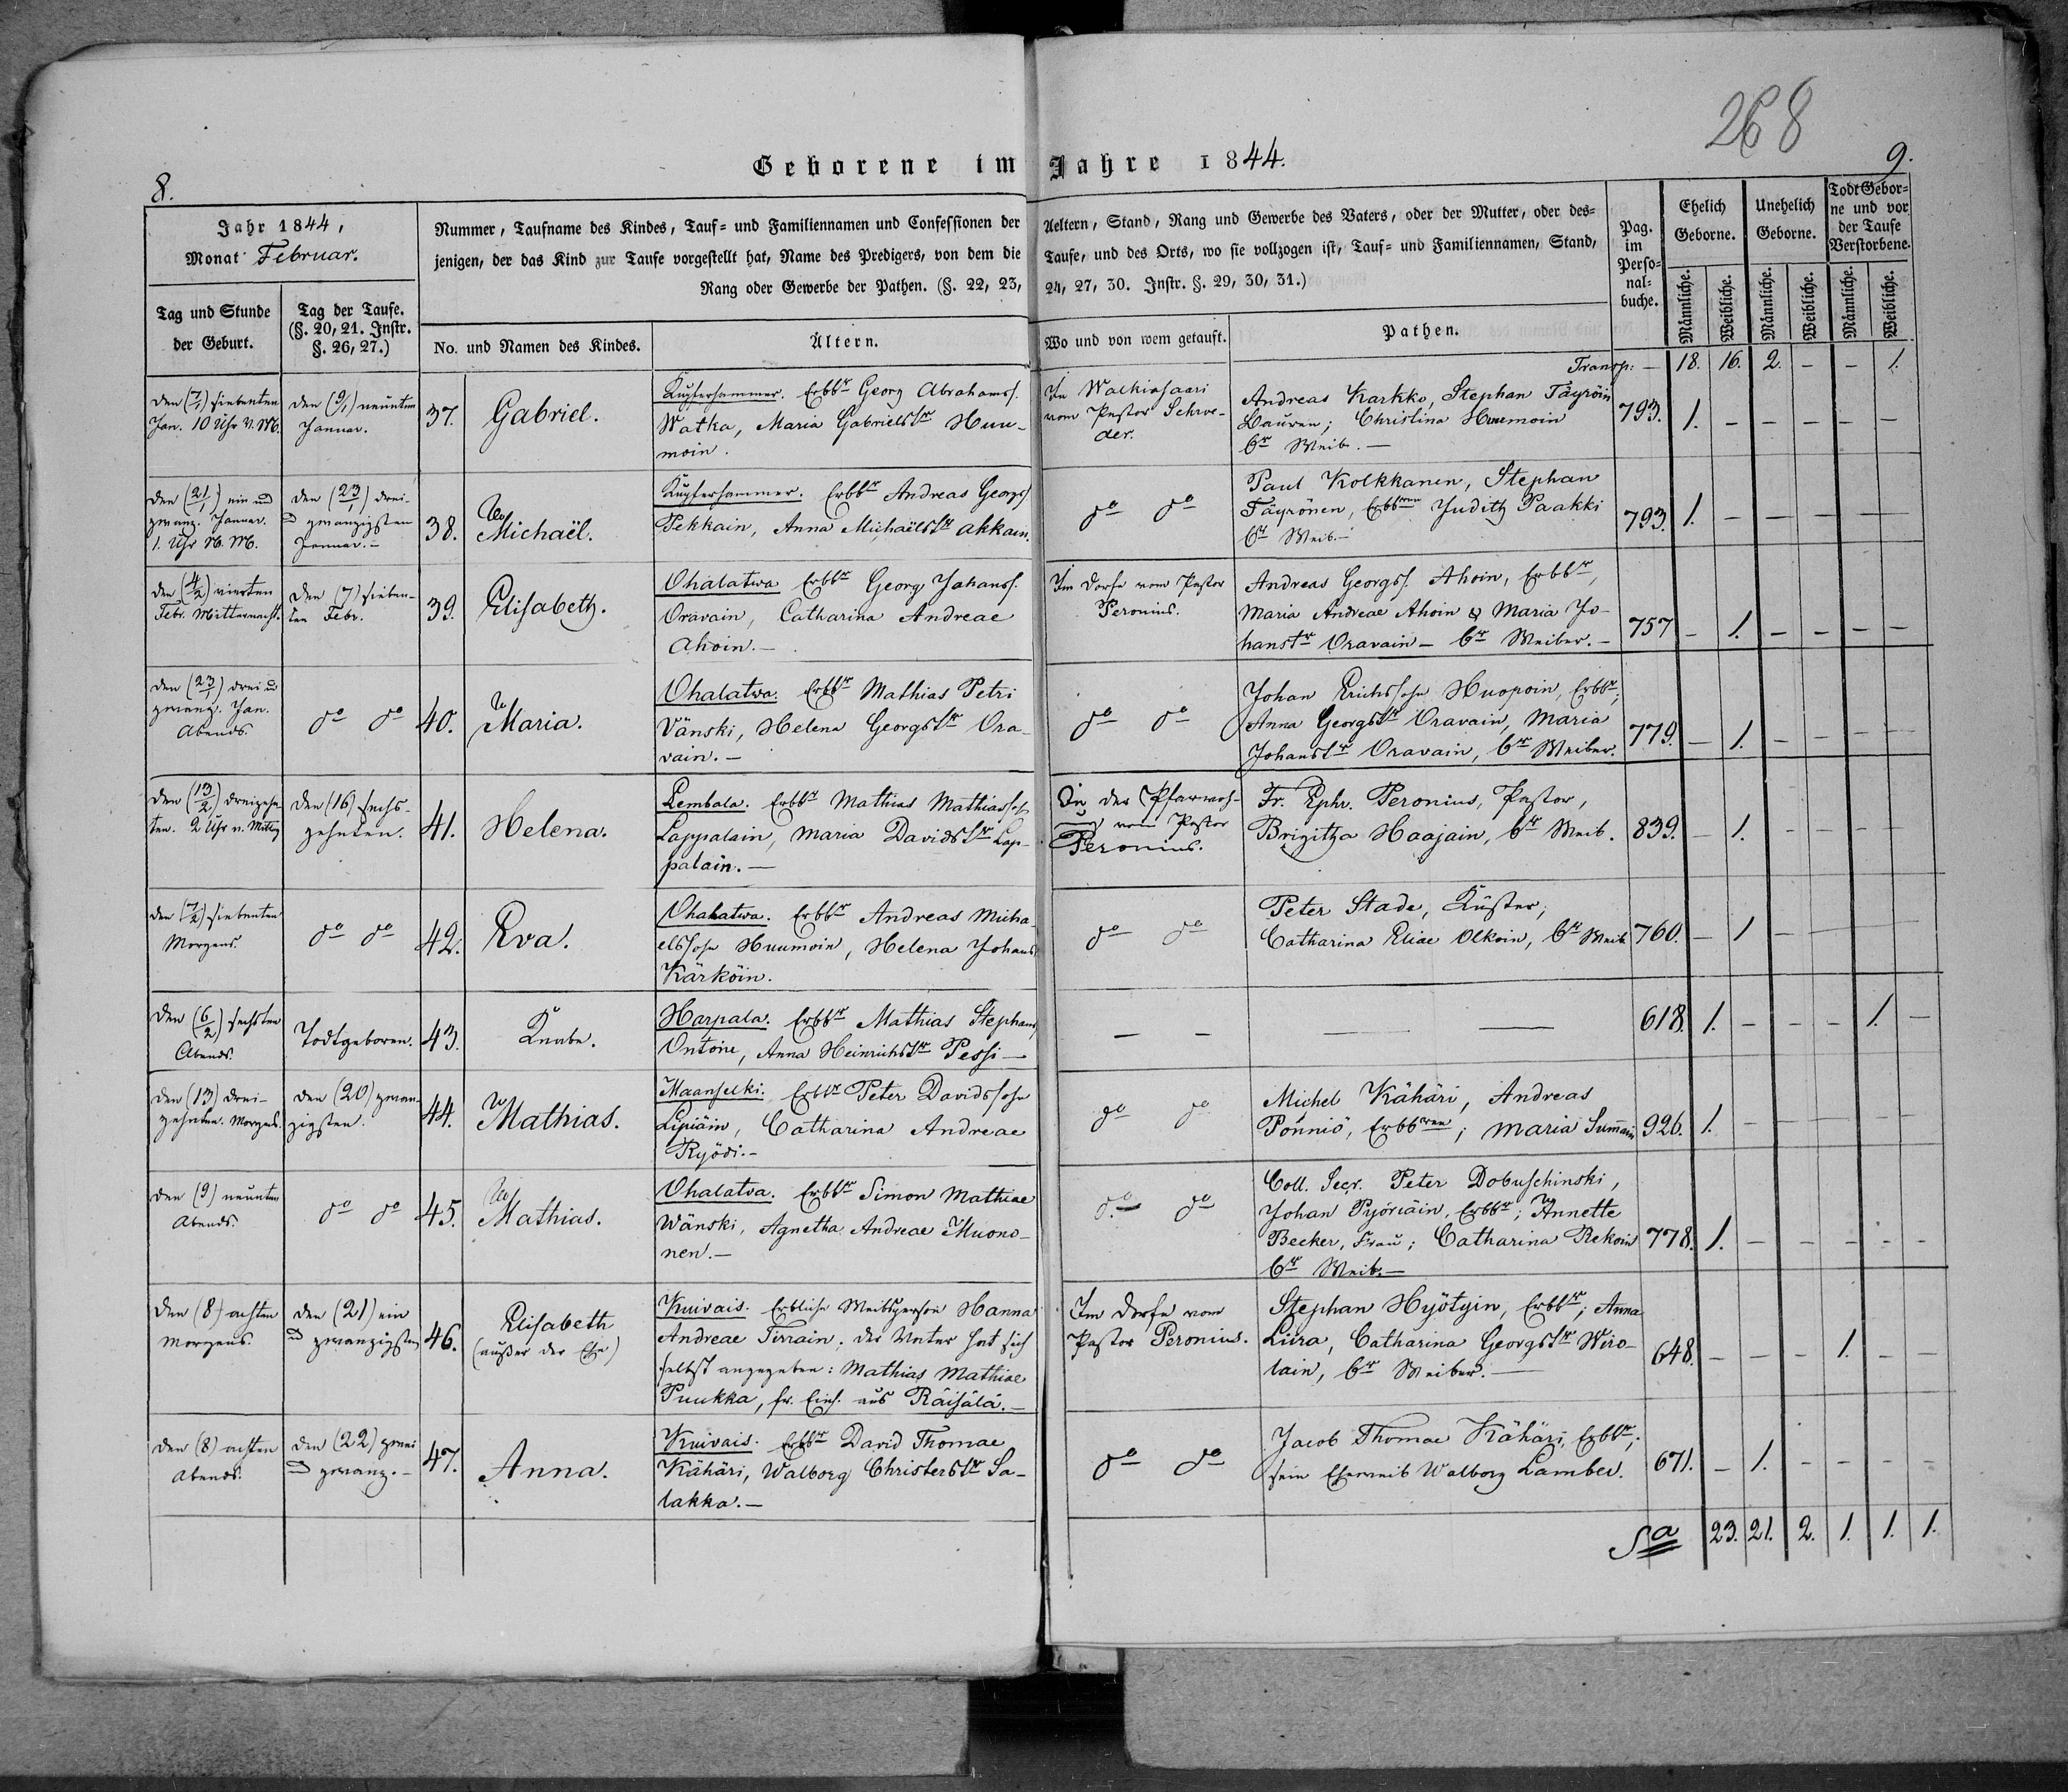 268
8.
9.
Geborene im Jahre 1844.
Jahr 1844,
Monat Februar.
Tag und Stunde
der Geburt.
Tag der Taufe.
(§. 20, 21. Instr.
§. 26, 27.)
Nummer, Taufname des Kindes, Tauf= und Familiennamen und Confessionen der
jenigen, der das Kind zur Taufe vorgestellt hat, Name des Predigers, von dem die
Rang oder Gewerbe der Pathen. (§. 22, 23,
No. und Namen des Kindes.
Ältern.
Aeltern, Stand, Rang und Gewerbe des Vaters, oder der Mutter, oder des=
Taufe, und des Orts, wo sie vollzogen ist, Tauf= und Familiennamen, Stand,
24, 27, 30. Instr. §. 29, 30, 31.)
Wo und von wem getauft.
Pathen.
Pag.
im
Perso=
nal=
buche.
Ehelich
Geborne.
Unehelich
Geborne.
Todt Gebor=
ne und vor
der Taufe
Verstorbene.
Männliche.
Weibliche.
Männliche.
Weibliche.
Männliche.
Weibliche.
Transp: — 18. 16. 2. — — 1.
den (7/1) siebenten
Jan. 10 Uhr V. M.
den (9/1) neunten
Januar.
37.
Gabriel.
Kupferhammer. Erbbr Georg Abrahams.
Watka, Maria Gabrielstr Huu-
moin.
In Walkiasaari
vom Pastor Schroe-
der.
Andreas Karkko, Stephan Täyröin
Bauren; Christina Huumoin
br Weib. —
793. 1. — — — — —
den (21/1) ein und
zwanz. Januar.
1. Uhr N. M.
den (23/1) drei-
und zwanzigsten
Januar. —
38.
Michaël.
Kupferhammer. Erbbr Andreas Georgs
Pekkain, Anna Michaëlstr Akkain.
do do
Paul Kolkkanen, Stephan
Täyrönen, Erbbren Judith Paakki
br Weib. —
793. 1. — — — — —
den (4/2) vierten
Febr. Mitternacht.
den (7) sieben-
ten Febr.
39.
Elisabeth.
Ohalatwa Erbbr Georg Johanss.
Oravain, Catharina Andreae
Ahoin. —
Im Dorfe vom Pastor
Peronius.
Andreas Georgss. Ahoin, Erbbr,
Maria Andreae Ahoin & Maria Jo-
hanstr Oravain — br Weiber. —
757 — 1. — — — —
den (23/1) drei u
zwanz. Jan.
Abends.
do do
40.
Maria.
Ohalatwa. Erbbr Mathias Petri
Vänski, Helena Georgstr Ora-
vain. —
do do
Johan Erichssohn Huopoin, Erbbr;
Anna Georgstr Oravain, Maria
Johanstr Oravain, br Weiber.
779. — 1. — — — —
den (13/2) dreizehn-
ten. 2 Uhr n. Mittag
den (16) sechs-
zehnten.
41.
Helena.
Lembala. Erbbr Mathias Mathiassohn
Lappalain, Maria Davidstr Lap-
palain. —
In der Pfarrwoh-
nung vom Pastor
Peronius.
Fr. Ephr. Peronius, Pastor,
Brigitha Haajain, br Weib.
839. — 1. — — — —
den (7/2) siebenten
Morgens.
do do
42.
Eva.
Ohalatwa. Erbbr Andreas Micha-
elssohn Huumoin, Helena Johans
Kärköin.
do do
Peter Stade, Küster,
Catharina Eliae Olkoin, br Weib
760. — 1 — — — —
den (6/2) sechsten
Abends.
Todtgeboren.
43.
Knabe.
Harpala. Erbbr Mathias Stephans
Ontoine, Anna Heinrichstr Pessi —
— — — —
618. 1. — — — 1. —
den (13) drei-
zehnten. Morgens.
den (20) zwan-
zigsten.
44.
Mathias.
Maanselki. Erbbr Peter Davidssohn
Lipiäin, Catharina Andreae
Ryödi. —
do do
Michel Kähäri, Andreas
Pönniö, Erbbren; Maria Summain
926. 1. — — — — —
den (9) neunten
Abends.
do do
45.
Mathias.
Ohalatva. Erbbr Simon Mathiae
Wänski, Agnetha Andreae Muono-
nen. —
do. — do
Coll. Secr. Peter Dobuschinski,
Johan Pyöriäin, Erbbr; Annette
Becker, Frau; Catharina Rekoin
br Weib. —
778. 1. — — — — —
den (8) achten
Morgens.
den (21) ein
und zwanzigsten
46.
Elisabeth
(außer der Ehe)
Knivais. Erbliche Weibsperson Hanna
Andreae Tirrain; der Vater hat sich
selbst angegeben: Mathias Mathiae
Puukka, fr. Einh. aus Räisälä. —
Im Dorfe vom
Pastor Peronius.
Stephan Hyötyin, Erbbr; Anna
Liira, Catharina Georgstr Wiro-
lain, br Weiber. —
648. — — — 1. — —
den (8) achten
Abends.
den (22) zwei
und zwanz. —
47.
Anna.
Knivais. Erbbr David Thomae
Kähäri, Walborg Christerstr Sa-
lakka. —
do do
Jacob Thomae Kähäri, Erbbr;
sein Eheweib Walborg Lamber.
671. — 1. — — — —
Sa 23. 21. 2. 1. 1. 1.